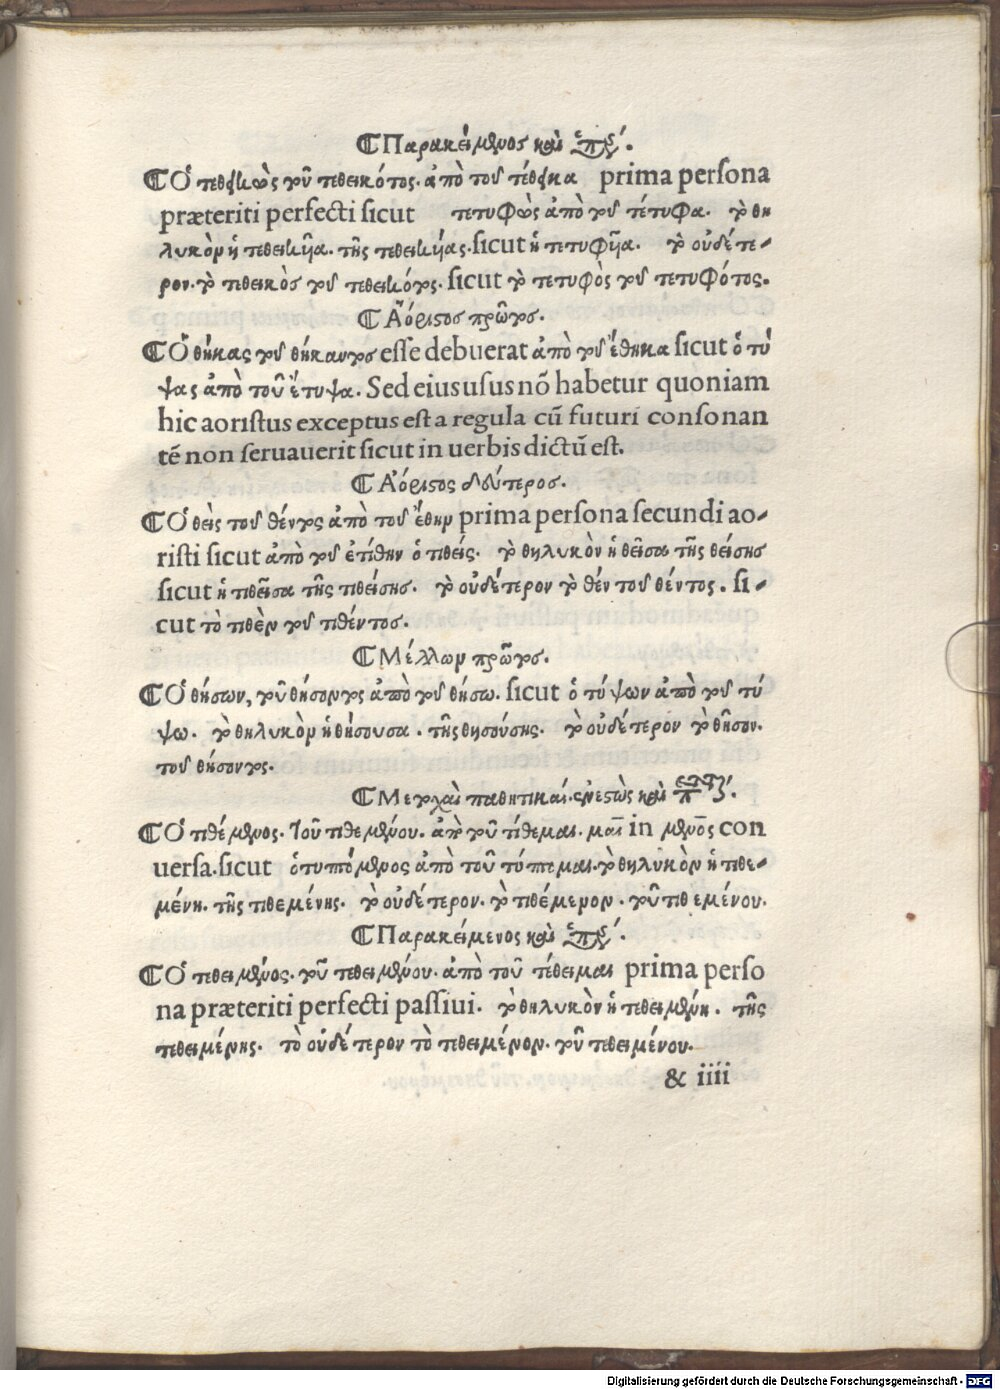 Παρακείμενος καὶ ὑπερ.
Ὁ τεθεικὼς τοῦ τεθεικότος. ἀπὸ τοῦ τέθεικα prima persona
præteriti perfecti sicut τετυφὼς ἀπὸ τοῦ τέτυφα. τὸ θη
λυκὸν ἡ τεθεικυῖα. τῆς τεθεικυίας. sicut ἡ τετυφυῖα. τὸ οὐδέτε-
ρον. τὸ τεθεικὸς τοῦ τεθεικότος. sicut τὸ τετυφὸς τοῦ τετυφότος.
Ἀόριστος πρῶτος.
Ὁ θήκας τοῦ θήκαντος esse debuerat ἀπὸ τοῦ ἔθηκα sicut ὁ τύ
ψας ἀπὸ τοῦ ἔτυψα. Sed eius usus nõ habetur quoniam
hic aoristus exceptus est a regula cũ futuri consonan
tẽ non seruauerit sicut in uerbis dictũ est.
Ἀόριστος δεύτερος.
Ὁ θεὶς τοῦ θέντος ἀπὸ τοῦ ἔθην prima persona secundi ao-
risti sicut ἀπὸ τοῦ ἐτίθην ὁ τιθείς. τὸ θηλυκὸν ἡ θεῖσα τῆς θείσης
sicut ἡ τιθεῖσα τῆς τιθείσης. τὸ οὐδέτερον τὸ θέν τοῦ θέντος. si-
cut τὸ τιθὲν τοῦ τιθέντος.
Μέλλων πρῶτος.
Ὁ θήσων, τοῦ θήσοντος ἀπὸ τοῦ θήσω. sicut ὁ τύψων ἀπὸ τοῦ τύ
ψω. τὸ θηλυκὸν ἡ θήσουσα. τῆς θησούσης. τὸ οὐδέτερον τὸ θῆσον.
τοῦ θήσοντος.
Μετοχαὶ παθητικαί. ἐνεστὼς καὶ
Ὁ τιθέμενος. τοῦ τιθεμένου. ἀπὸ τοῦ τίθεμαι. μαι in μενος con
uersa. sicut ὁ τυπτόμενος ἀπὸ τοῦ τύπτομαι. τὸ θηλυκὸν ἡ τιθε-
μένη. τῆς τιθεμένης. τὸ οὐδέτερον. τὸ τιθέμενον. τοῦ τιθεμένου.
Παρακείμενος καὶ ὑπερ.
Ὁ τεθειμένος. τοῦ τεθειμένου. ἀπὸ τοῦ τέθειμαι prima perso
na præteriti perfecti passiui. τὸ θηλυκὸν ἡ τεθειμένη. τῆς
τεθειμένης. τὸ οὐδέτερον τὸ τεθειμένον. τοῦ τεθειμένου.
& iiii
Digitalisierung gefördert durch die Deutsche Forschungsgemeinschaft - DFG